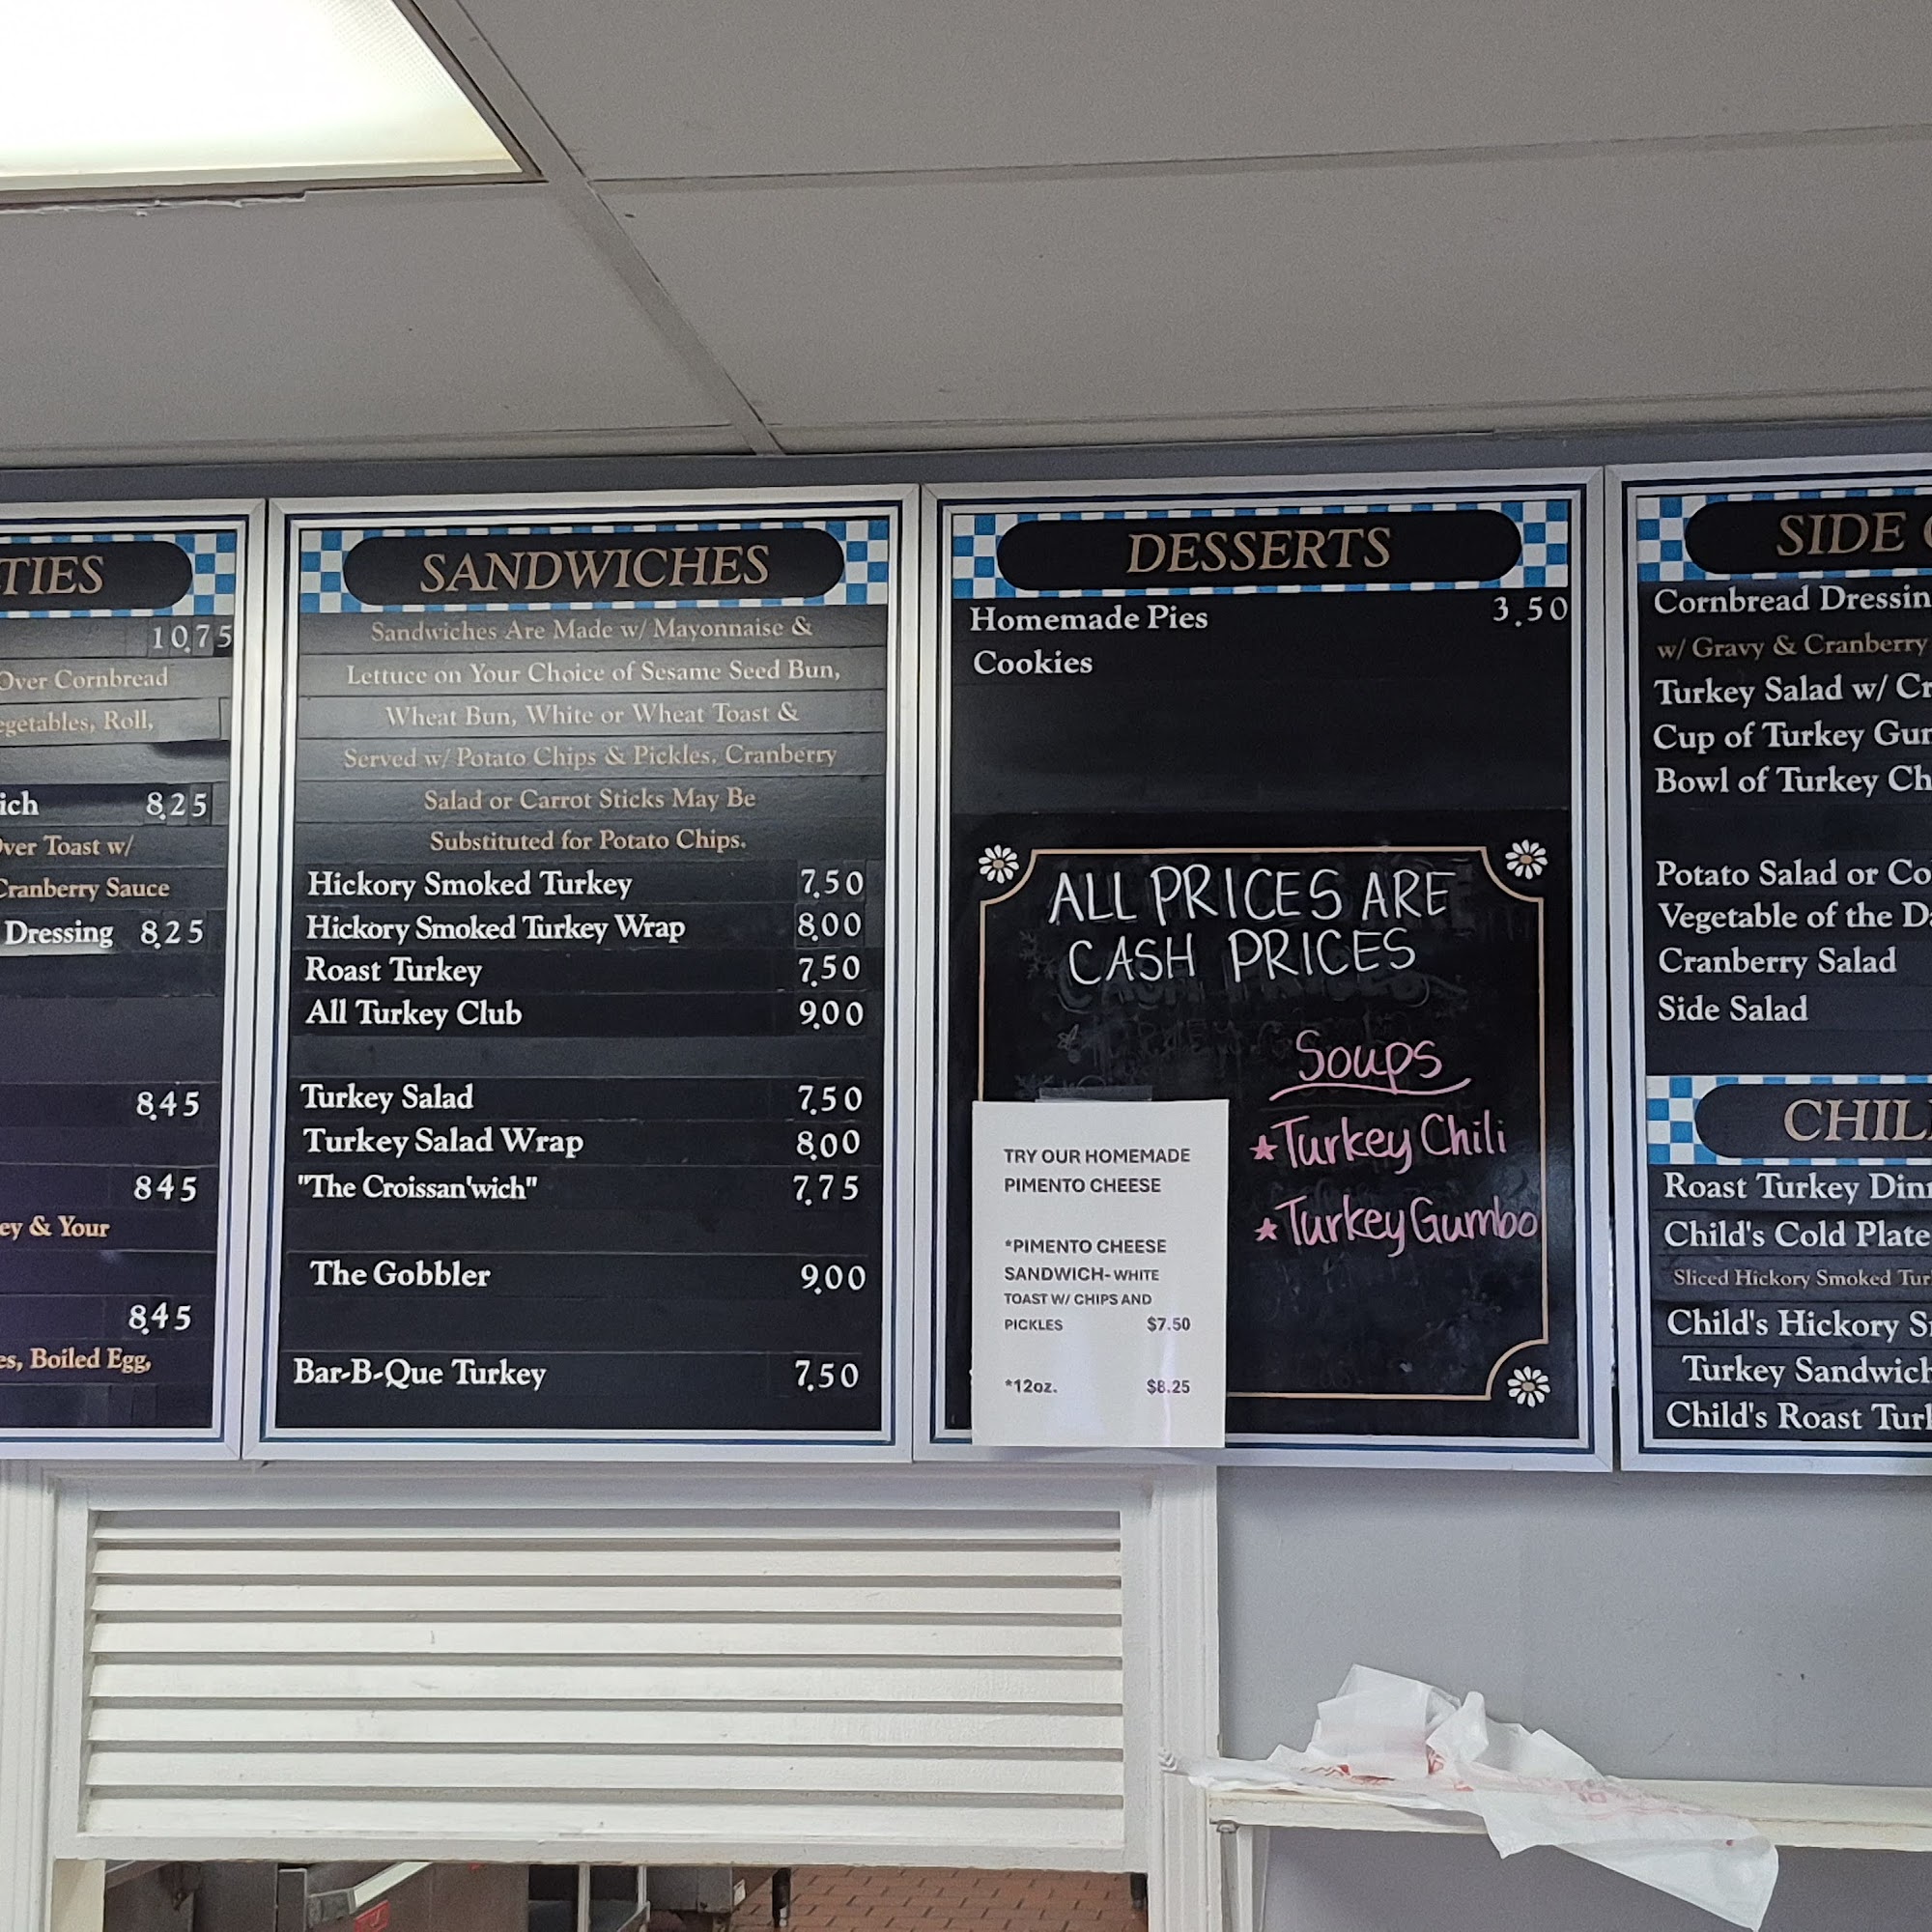 TIES
10.75
Over Cornbread
egetables, Roll,
ich 8.25
Over Toast w/
Cranberry Sauce
Dressing 8.25
8.45
8.45
ey & Your
8.45
es, Boiled Egg,
SANDWICHES
Sandwiches Are Made w/ Mayonnaise &
Lettuce on Your Choice of Sesame Seed Bun,
Wheat Bun, White or Wheat Toast &
Served w/ Potato Chips & Pickles. Cranberry
Salad or Carrot Sticks May Be
Substituted for Potato Chips.
Hickory Smoked Turkey 7.50
Hickory Smoked Turkey Wrap 8.00
Roast Turkey 7.50
All Turkey Club 9.00
Turkey Salad 7.50
Turkey Salad Wrap 8.00
"The Croissan'wich" 7.75
The Gobbler 9.00
Bar-B-Que Turkey 7.50
DESSERTS
Homemade Pies 3.50
Cookies
ALL PRICES ARE
CASH PRICES
Soups
Turkey Chili
Turkey Gumbo
TRY OUR HOMEMADE
PIMENTO CHEESE
*PIMENTO CHEESE
SANDWICH- WHITE
TOAST W/ CHIPS AND
PICKLES $7.50
*12oz. $8.25
SIDE
Cornbread Dressin
w/ Gravy & Cranberry
Turkey Salad w/ Cr
Cup of Turkey Gum
Bowl of Turkey Ch
Potato Salad or Co
Vegetable of the D
Cranberry Salad
Side Salad
CHIL
Roast Turkey Dinn
Child's Cold Plate
Sliced Hickory Smoked Tur
Child's Hickory S
Turkey Sandwich
Child's Roast Turk